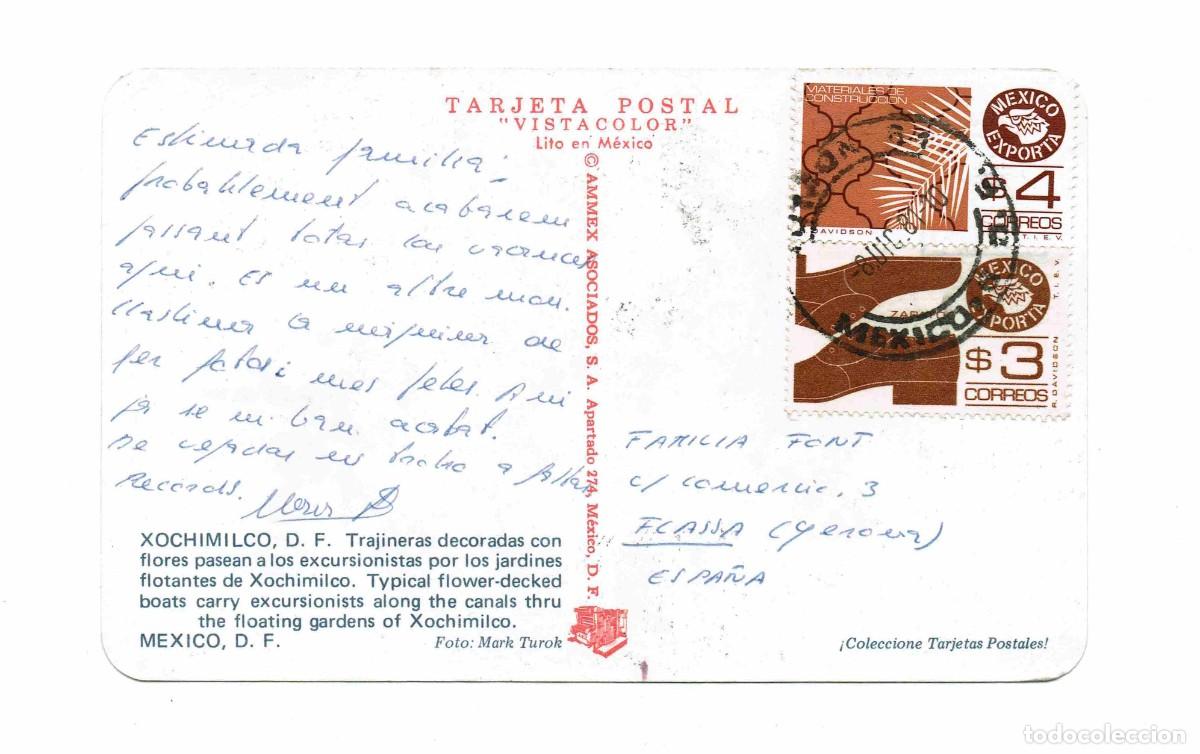 TARJETA POSTAL
"VISTACOLOR"
Lito en México
Estimada familia;
probablement acabarem
passant totas las vacances
aqui. Es un altre mon.
Llastima la
fer fotos i mes
ja se m'han acabat.
Records.
XOCHIMILCO, D. F. Trajineras decoradas con
flores pasean a los excursionistas por los jardines
flotantes de Xochimilco. Typical flower-decked
boats carry excursionists along the canals thru
the floating gardens of Xochimilco.
MEXICO, D. F. Foto: Mark Turok
© AMMEX ASOCIADOS, S. A. Apartado 274, México, D. F.
MATERIALES DE
CONSTRUCCION
MEXICO
EXPORTA
$4
CORREOS
DAVIDSON
T.I.E.V.
MEXICO
EXPORTA
$3
CORREOS
T.I.E.V.
R. DAVIDSON
MEXICO
FAMILIA FONT
c/ comercio, 3
FLASSA (Gerona)
ESPAÑA
¡Coleccione Tarjetas Postales!
todocoleccion